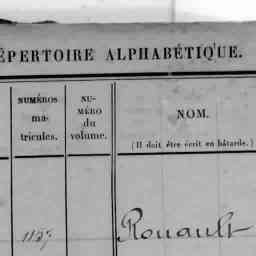 RÉPERTOIRE ALPHABÉTIQUE.
NUMÉROS
ma-
tricules.
NU-
MÉRO
du
volume.
NOM.
(Il doit être écrit en bâtarde.)
Rouault